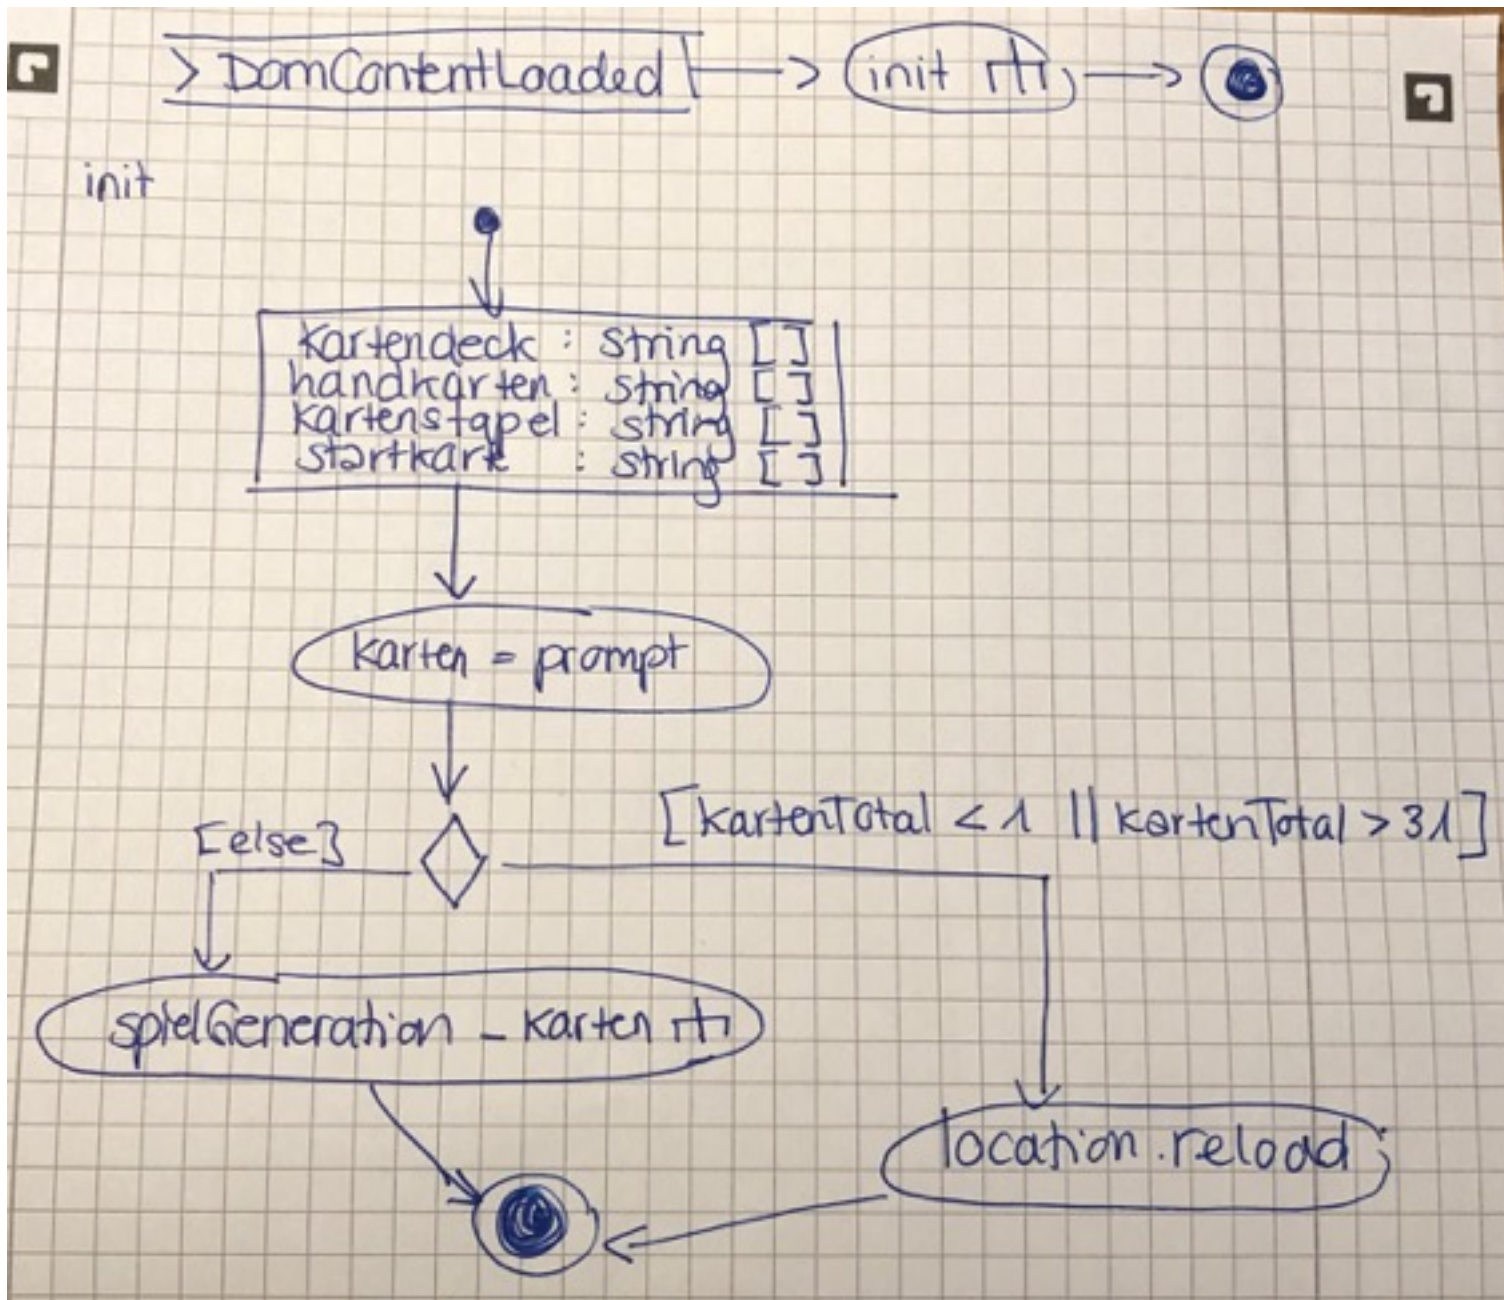 DomContentLoaded
init
init
kartendeck : string []
handkarten : string []
kartenstapel : string []
startkarte : string []
karten = prompt
[else]
[kartenTotal < 1 || kartenTotal > 31]
spielGeneration - karten
location.reload